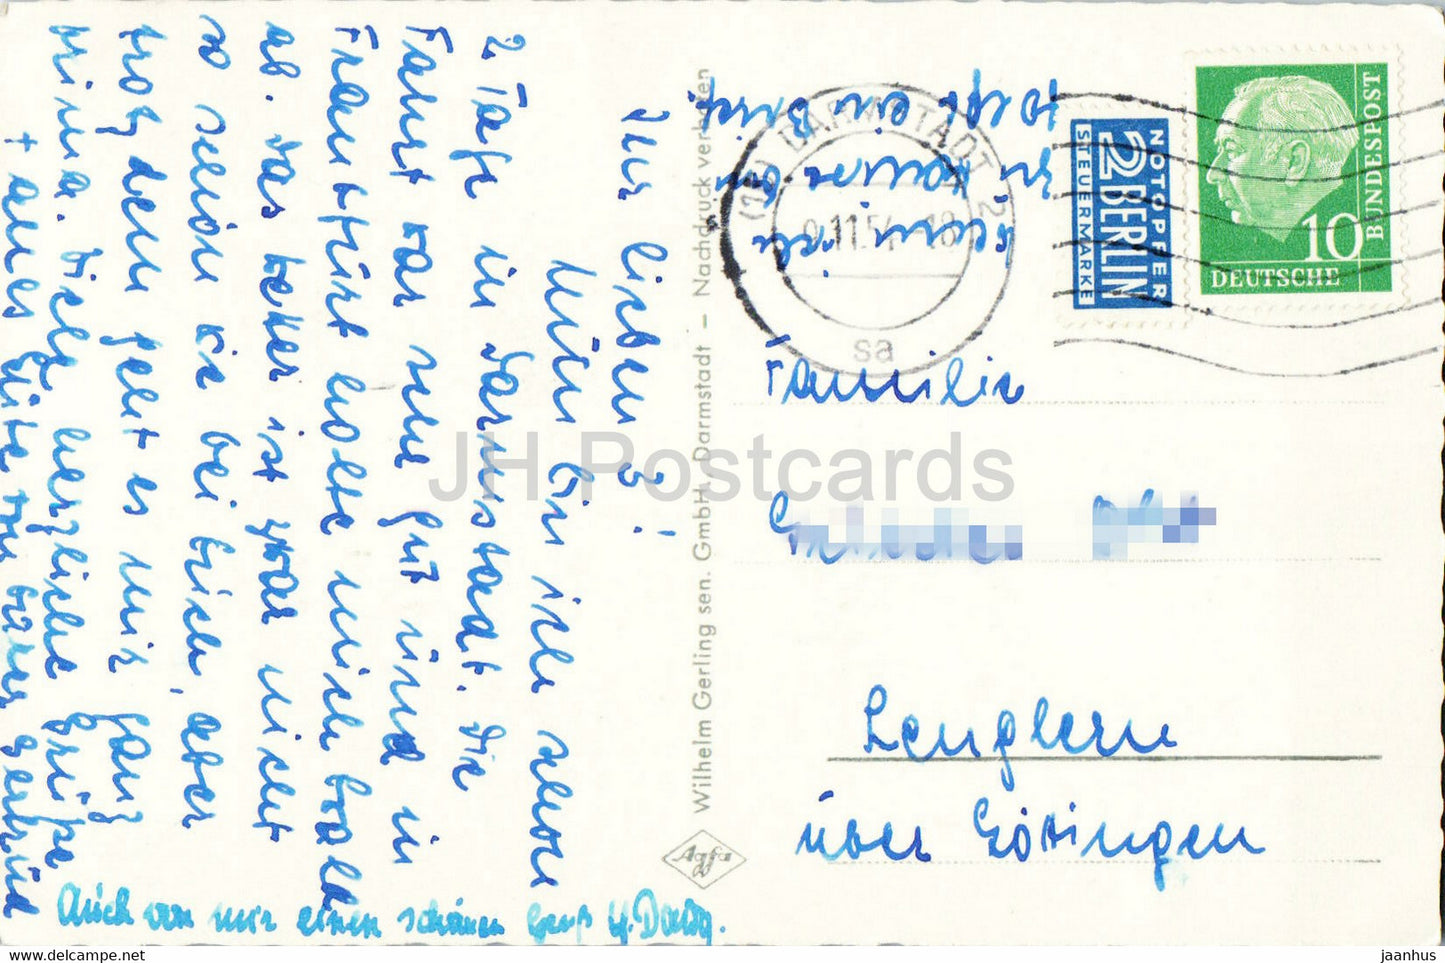 Ihr lieben 3!
Nun bin ich schon
2 Tage in Darmstadt. Die
Fahrt war sehr gut und in
Frankfurt holte mich
ab. Das Wetter ist zwar nicht
so schön wie bei Euch, aber
trotzdem geht es mir ganz
prima. Viele herzliche Grüße
+ alles Gute von Eurer Gertrud
Auch von mir einen schönen Gruß
folgt ein Brief.
Wilhelm Gerling sen. GmbH. Darmstadt – Nachdruck verboten
Agfa
DARMSTADT 2
11.54 - 18
sa
NOTOPFER
2 BERLIN
STEUERMARKE
10
DEUTSCHE
BUNDESPOST
Familie
Lenglern
über Göttingen
JH Postcards
hippostcard.com
jaanhus